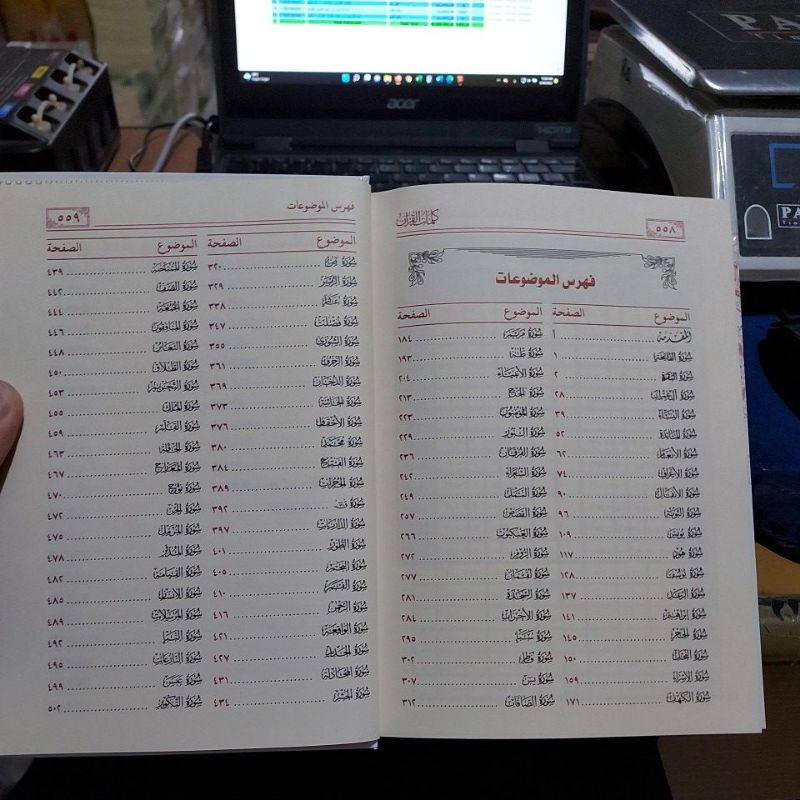 acer
HDMI
٥٥٨
كلمات القرآن
فهرس الموضوعات
الموضوع الصفحة
المقدمة أ
سورة الفاتحة ١
سورة البقرة ٢
سورة آل عمران ٢٨
سورة النساء ٣٩
سورة المائدة ٥٢
سورة الأنعام ٦٢
سورة الأعراف ٧٤
سورة الأنفال ٩٠
سورة التوبة ٩٦
سورة يونس ١٠٩
سورة هود ١١٧
سورة يوسف ١٢٨
سورة الرعد ١٣٧
سورة إبراهيم ١٤١
سورة الحجر ١٤٥
سورة النحل ١٥٠
سورة الإسراء ١٥٩
سورة الكهف ١٧١
الموضوع الصفحة
سورة مريم ١٨٤
سورة طه ١٩٣
سورة الأنبياء ٢٠٤
سورة الحج ٢١٣
سورة المؤمنون ٢٢٣
سورة النور ٢٢٩
سورة الفرقان ٢٣٦
سورة الشعراء ٢٤٢
سورة النمل ٢٤٩
سورة القصص ٢٥٧
سورة العنكبوت ٢٦٦
سورة الروم ٢٧٢
سورة لقمان ٢٧٧
سورة السجدة ٢٨١
سورة الأحزاب ٢٨٤
سورة سبأ ٢٩٥
سورة فاطر ٣٠٢
سورة يس ٣٠٧
سورة الصافات ٣١٢
فهرس الموضوعات
٥٥٩
الموضوع الصفحة
سورة ص ٣٢٠
سورة الزمر ٣٢٩
سورة غافر ٣٣٨
سورة فصلت ٣٤٧
سورة الشورى ٣٥٥
سورة الزخرف ٣٦١
سورة الدخان ٣٦٩
سورة الجاثية ٣٧٣
سورة الأحقاف ٣٧٦
سورة محمد ٣٨٠
سورة الفتح ٣٨٤
سورة الحجرات ٣٨٩
سورة ق ٣٩٢
سورة الذاريات ٣٩٧
سورة الطور ٤٠١
سورة النجم ٤٠٥
سورة القمر ٤١٠
سورة الرحمن ٤١٦
سورة الواقعة ٤٢١
سورة الحديد ٤٢٧
سورة المجادلة ٤٣١
سورة الحشر ٤٣٤
الموضوع الصفحة
سورة الممتحنة ٤٣٩
سورة الصف ٤٤٢
سورة الجمعة ٤٤٤
سورة المنافقون ٤٤٦
سورة التغابن ٤٤٨
سورة الطلاق ٤٥٠
سورة التحريم ٤٥٣
سورة الملك ٤٥٥
سورة القلم ٤٥٩
سورة الحاقة ٤٦٣
سورة المعارج ٤٦٧
سورة نوح ٤٧٠
سورة الجن ٤٧٢
سورة المزمل ٤٧٥
سورة المدثر ٤٧٨
سورة القيامة ٤٨٢
سورة الإنسان ٤٨٥
سورة المرسلات ٤٨٩
سورة النبأ ٤٩٢
سورة النازعات ٤٩٥
سورة عبس ٤٩٩
سورة التكوير ٥٠٢